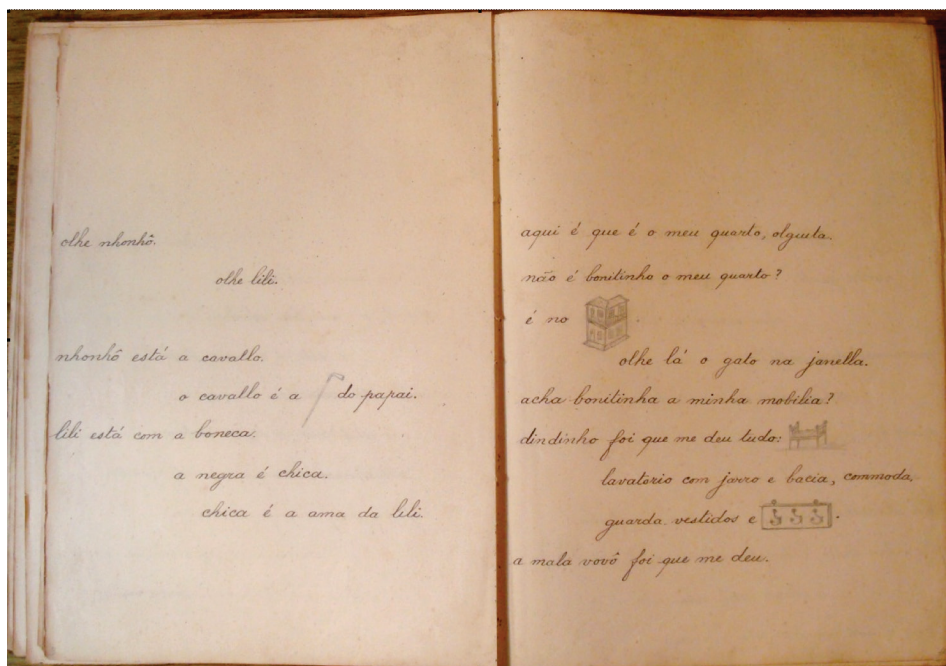 olhe nhonhô.
olhe lili.
nhonhô está a cavallo.
o cavallo é a do papai.
lili está com a boneca.
a negra é chica.
chica é a ama da lili.
aqui é que é o meu quarto, olguita.
não é bonitinho o meu quarto?
é no .
olhe lá o gato na janella.
acha bonitinha a minha mobilia?
dindinho foi que me deu tudo:
lavatorio com jarro e bacia, commoda,
guarda vestidos e .
a mala vovô foi que me deu.